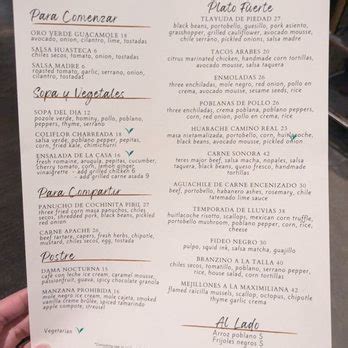 Para Comenzar
ORO VERDE GUACAMOLE 18
avocado, onion, cilantro, lime, tostadas
SALSA HUASTECA 6
chiles secos, tomato, onion, tostadas
SALSA MADRE 6
roasted tomato, garlic, serrano, onion,
cilantro, tostadas
Sopa y Vegetales
SOPA DEL DIA 12
pozole verde, hominy, pollo, poblano,
peppers, thyme, serrano
COLIFLOR CHARREADA 18
salsa verde, poblano pepper, pepitas,
corn, fried kale, chimichurri
ENSALADA DE LA CASA 16
fresh romaine, arugula, pepitas, cucumber,
cherry tomato, corn, lemon ginger,
vinaigrette - add grilled chicken 6
- add grilled carne asada 9
Para Compartir
PANUCHO DE COCHINITA PIBIL 27
three fried corn masa panuchos, chiles
secos, shredded pork, black beans, pickled
red onion
CARNE APACHE 26
beef tartare, capers, fresh herbs, chipotle,
mustard, chiles secos, egg, tostada
Postre
DAMA NOCTURNA 15
cafe con leche ice cream, caramel mousse,
passionfruit, guava, spicy chocolate granola
MANZANA PROHIBIDA 16
mole negro ice cream, mole cajeta, smoked
vanilla creme brulee, compressed apple
carrot cake
Vegetarian
Plato Fuerte
TLAYUDA DE PIEDAD 27
black beans, portobello, quesillo, pork asiento,
grasshopper, grilled cauliflower, avocado mousse,
chile serrano, pickled onions, salsa madre
TACOS ARABES 20
citrus marinated chicken, handmade corn tortillas,
avocado mousse, salsa taquera
ENMOLADAS 26
three enchiladas, mole negro, red onion, pollo en
crema, avocado mousse, sesame seeds, rice
POBLANAS DE POLLO 26
three enchiladas, crema poblana, poblano peppers,
corn, red onion, pollo en crema, rice
HUARACHE CAMINO REAL 23
masa nixtamalizada, portobello, corn, huitlacoche,
black beans, avocado mousse, pickled onion
CARNE SONORA 42
teres major beef, salsa macha, nopales, salsa
taquera, black beans, queso fresco, handmade
tortillas
AGUACHILE DE CARNE ENCENIZADO 30
beef, portobello, habanero ashes, rosemary, chile
tatemado lime sauce
TEMPORADA DE LLUVIAS 34
huitlacoche risotto, scallops, mexican corn truffle,
portobello, corn, mushrooms, poblano pepper, red
onion
FIDEO NEGRO 30
pulpo, squid ink, salsa matcha, guajillo
BRANZINO A LA TALLA 40
chiles secos, tomatillo, poblano, serrano pepper,
rice, house salad, corn tortillas
MEJILLONES A LA MAXIMILIANA 42
flamed raicilla mussels, scallop, octopus, chipotle
thyme garlic crema
Al Lado
Arroz poblano 5
Frijoles negros 5